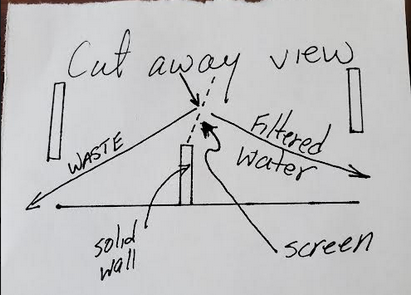 Cut away view
WASTE
Filtered
Water
solid
wall
screen